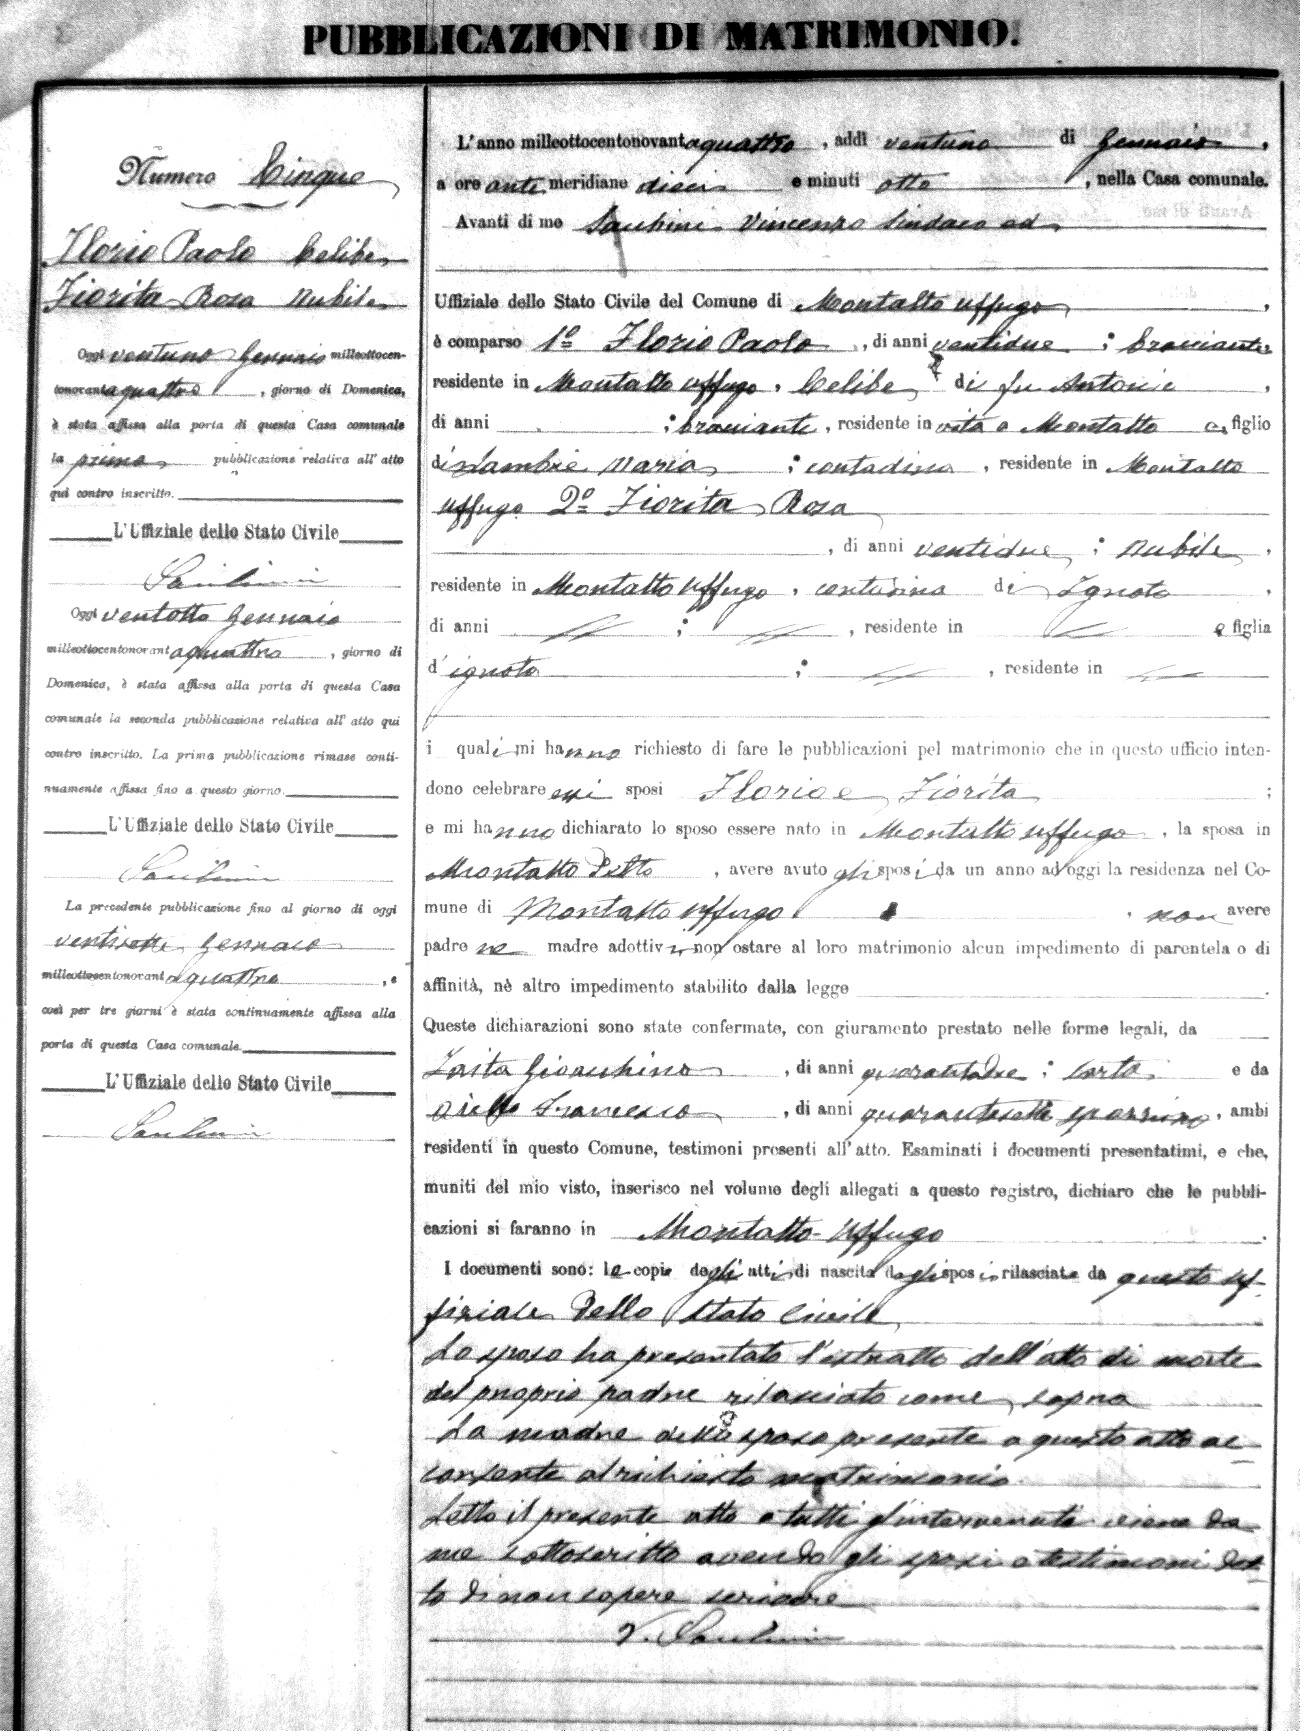 PUBBLICAZIONI DI MATRIMONIO.
Numero Cinque
Florio Paolo Celibe
Fiorita Rosa Nubile
Oggi ventuno Gennaio milleottocen-
tonovantaquattro, giorno di Domenica,
è stata affissa alla porta di questa Casa comunale
la prima pubblicazione relativa all' atto
qui contro inscritto.
L'Uffiziale dello Stato Civile
Oggi ventotto Gennaio
milleottocentonovantaquattro, giorno di
Domenica, è stata affissa alla porta di questa Casa
comunale la seconda pubblicazione relativa all' atto qui
contro inscritto. La prima pubblicazione rimase conti-
nuamente affissa fino a questo giorno.
L'Uffiziale dello Stato Civile
La precedente pubblicazione fino al giorno di oggi
Gennaio
milleottocentonovantaquattro, e
così per tre giorni è stata continuamente affissa alla
porta di questa Casa comunale.
L'Uffiziale dello Stato Civile
L'anno milleottocentonovantaquattro, addì ventuno di Gennaio,
a ore antimeridiane dieci e minuti otto, nella Casa comunale.
Avanti di me Vincenzo Sindaco ed
Uffiziale dello Stato Civile del Comune di Montalto Uffugo,
è comparso 1º Florio Paolo, di anni ventidue; bracciante
residente in Montalto Uffugo, Celibe di fu Antonio,
di anni ; bracciante, residente in vita a Montalto e, figlio
di Maria; contadina, residente in Montalto
Uffugo 2º Fiorita Rosa
, di anni ventidue; Nubile,
residente in Montalto Uffugo, contadina di Ignoto,
di anni ; , residente in e figlia
d'ignota ; , residente in
i quali mi hanno richiesto di fare le pubblicazioni pel matrimonio che in questo ufficio inten-
dono celebrare essi sposi Florio e Fiorita;
e mi hanno dichiarato lo sposo essere nato in Montalto Uffugo, la sposa in
Montalto detto, avere avuto gli sposi da un anno ad oggi la residenza nel Co-
mune di Montalto Uffugo, non avere
padre ne madre adottivi, non ostare al loro matrimonio alcun impedimento di parentela o di
affinità, nè altro impedimento stabilito dalla legge.
Queste dichiarazioni sono state confermate, con giuramento prestato nelle forme legali, da
Gioacchino, di anni quarantadue; sarto e da
Aiello Francesco, di anni quarantasette, ambi
residenti in questo Comune, testimoni presenti all'atto. Esaminati i documenti presentatimi, e che,
muniti del mio visto, inserisco nel volume degli allegati a questo registro, dichiaro che le pubbli-
cazioni si faranno in Montalto-Uffugo.
I documenti sono: le copie degli atti di nascita degli sposi rilasciate da questo Uf-
fiziale dello Stato Civile
Lo sposo ha presentato l'estratto dell'atto di morte
del proprio padre rilasciato come sopra
La madre dello sposo presente a questo atto ac-
consente al richiesto matrimonio
Letto il presente atto a tutti gl'intervenuti viene da
me sottoscritto avendo gli sposi e testimoni det-
to di non sapere scrivere